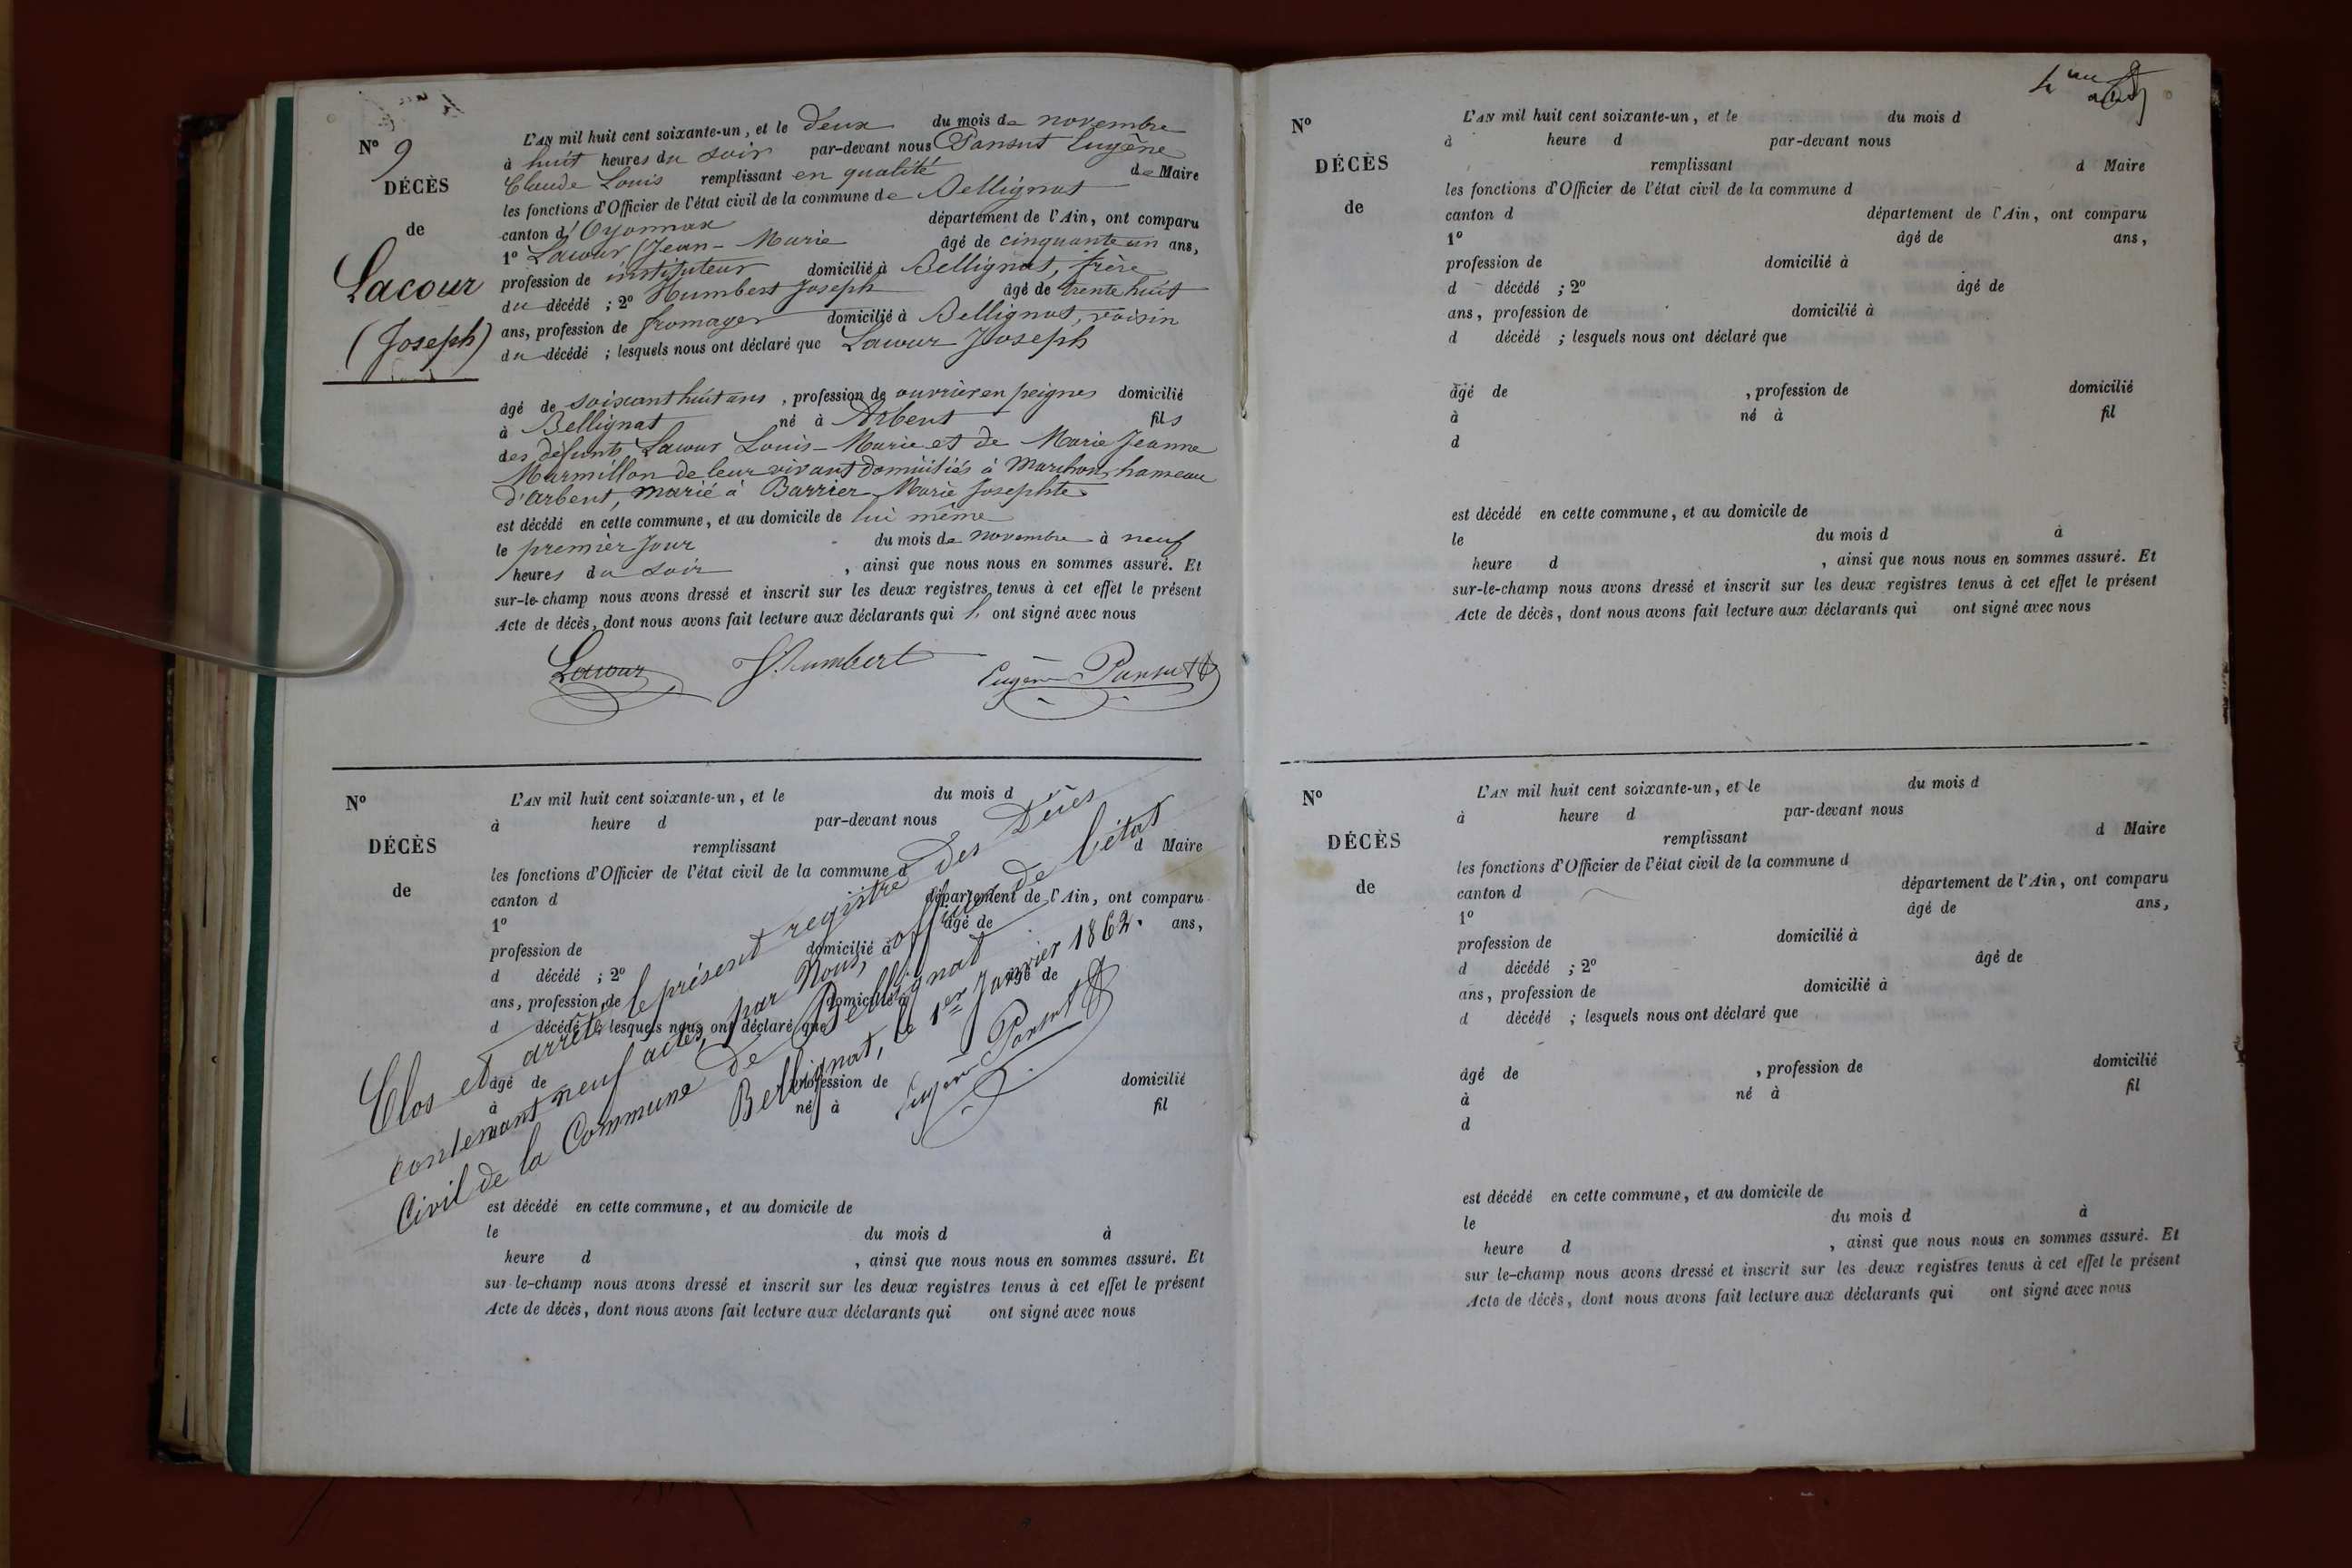 N° 9
DÉCÈS
de
Lacour
(Joseph)
L'AN mil huit cent soixante-un, et le deux du mois de novembre
à huit heures du soir par-devant nous Pansut Eugène
Claude Louis remplissant en qualité de Maire
les fonctions d'Officier de l'état civil de la commune de Bellignat
canton d'Oyonnax département de l'Ain, ont comparu
1° Lacour Jean-Marie âgé de cinquante un ans,
profession de instituteur domicilié à Bellignat, frère
du décédé ; 2° Humbert Joseph âgé de trente huit
ans, profession de fromager domicilié à Bellignat, voisin
du décédé ; lesquels nous ont déclaré que Lacour Joseph
âgé de soixant huit ans , profession de ouvrier en peignes domicilié
à Bellignat né à Arbent fils
des défunts Lacour Louis-Marie et de Marie Jeanne
Marmillon de leur vivant domiciliés à Marchon, hameau
d'Arbent, marié à Barrier Marie Josephte
est décédé en cette commune, et au domicile de lui même
le premier jour du mois de novembre à neuf
heures du soir , ainsi que nous nous en sommes assuré. Et
sur-le-champ nous avons dressé et inscrit sur les deux registres tenus à cet effet le présent
Acte de décès, dont nous avons fait lecture aux déclarants qui ont signé avec nous
Lacour Humbert Eugène Pansut
N°
DÉCÈS
de
L'AN mil huit cent soixante-un, et le du mois d
à heure d par-devant nous
remplissant d Maire
les fonctions d'Officier de l'état civil de la commune d
canton d département de l'Ain, ont comparu
1° âgé de ans,
profession de domicilié à
d décédé ; 2° âgé de
ans, profession de domicilié à
d décédé ; lesquels nous ont déclaré que
âgé de , profession de domicilié
à né à fil
Clos et arrêté le présent registre des Décès
contenant neuf actes, par Nous, officier de l'état
Civil de la Commune de Bellignat
Bellignat, le 1er Janvier 1862.
Eugène Pansut
est décédé en cette commune, et au domicile de
le du mois d à
heure d , ainsi que nous nous en sommes assuré. Et
sur-le-champ nous avons dressé et inscrit sur les deux registres tenus à cet effet le présent
Acte de décès, dont nous avons fait lecture aux déclarants qui ont signé avec nous
N°
DÉCÈS
de
L'AN mil huit cent soixante-un, et le du mois d
à heure d par-devant nous
remplissant d Maire
les fonctions d'Officier de l'état civil de la commune d
canton d département de l'Ain, ont comparu
1° âgé de ans,
profession de domicilié à
d décédé ; 2° âgé de
ans, profession de domicilié à
d décédé ; lesquels nous ont déclaré que
âgé de , profession de domicilié
à né à fil
d
est décédé en cette commune, et au domicile de
le du mois d à
heure d , ainsi que nous nous en sommes assuré. Et
sur-le-champ nous avons dressé et inscrit sur les deux registres tenus à cet effet le présent
Acte de décès, dont nous avons fait lecture aux déclarants qui ont signé avec nous
N°
DÉCÈS
de
L'AN mil huit cent soixante-un, et le du mois d
à heure d par-devant nous
remplissant d Maire
les fonctions d'Officier de l'état civil de la commune d
canton d département de l'Ain, ont comparu
1° âgé de ans,
profession de domicilié à
d décédé ; 2° âgé de
ans, profession de domicilié à
d décédé ; lesquels nous ont déclaré que
âgé de , profession de domicilié
à né à fil
d
est décédé en cette commune, et au domicile de
le du mois d à
heure d , ainsi que nous nous en sommes assuré. Et
sur le-champ nous avons dressé et inscrit sur les deux registres tenus à cet effet le présent
Acte de décès, dont nous avons fait lecture aux déclarants qui ont signé avec nous